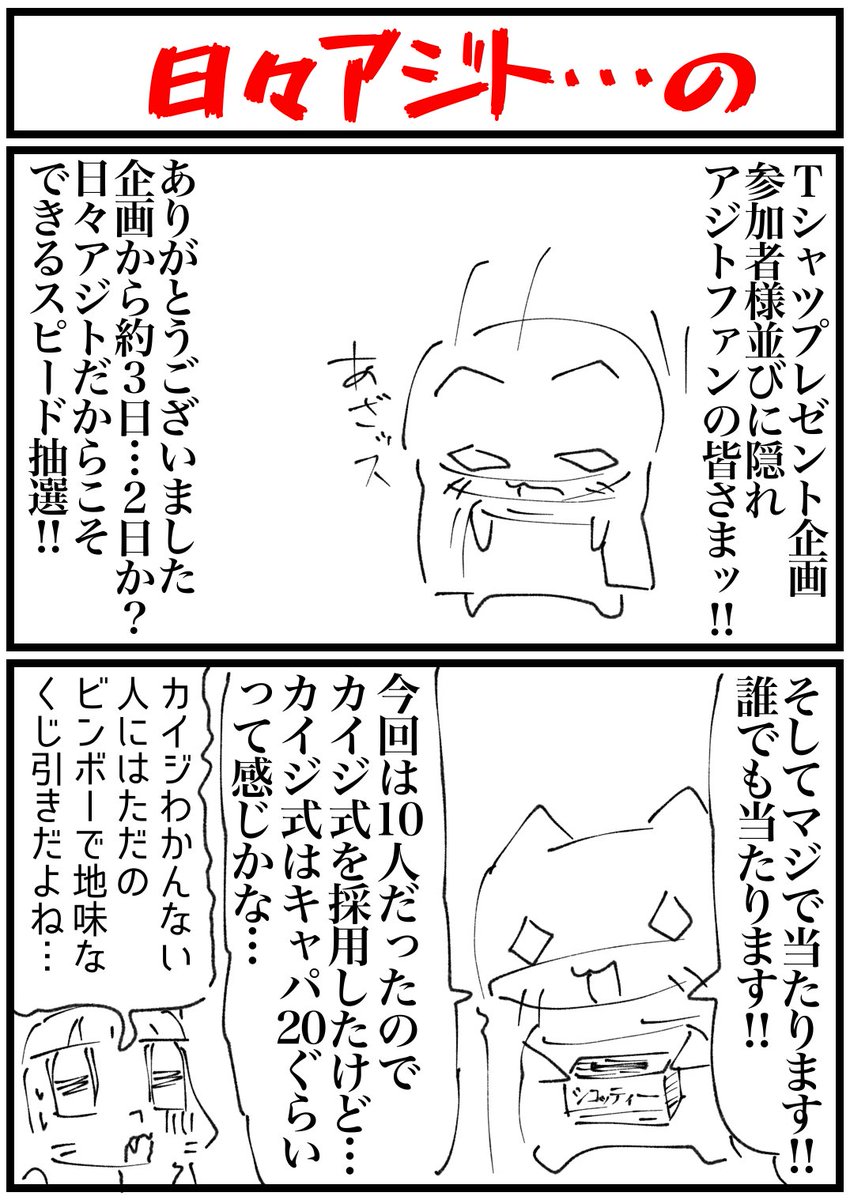 日々アジト…の
Tシャツプレゼント企画
参加者様並びに隠れ
アジトファンの皆さまッ!!
あざス
ありがとうございました
企画から約3日…2日か?
日々アジトだからこそ
できるスピード抽選!!
そしてマジで当たります!!
誰でも当たります!!
シコッティー
今回は10人だったので
カイジ式を採用したけど…
カイジ式はキャパ20ぐらい
って感じかな…
カイジわかんない
人にはただの
ビンボーで地味な
くじ引きだよね…